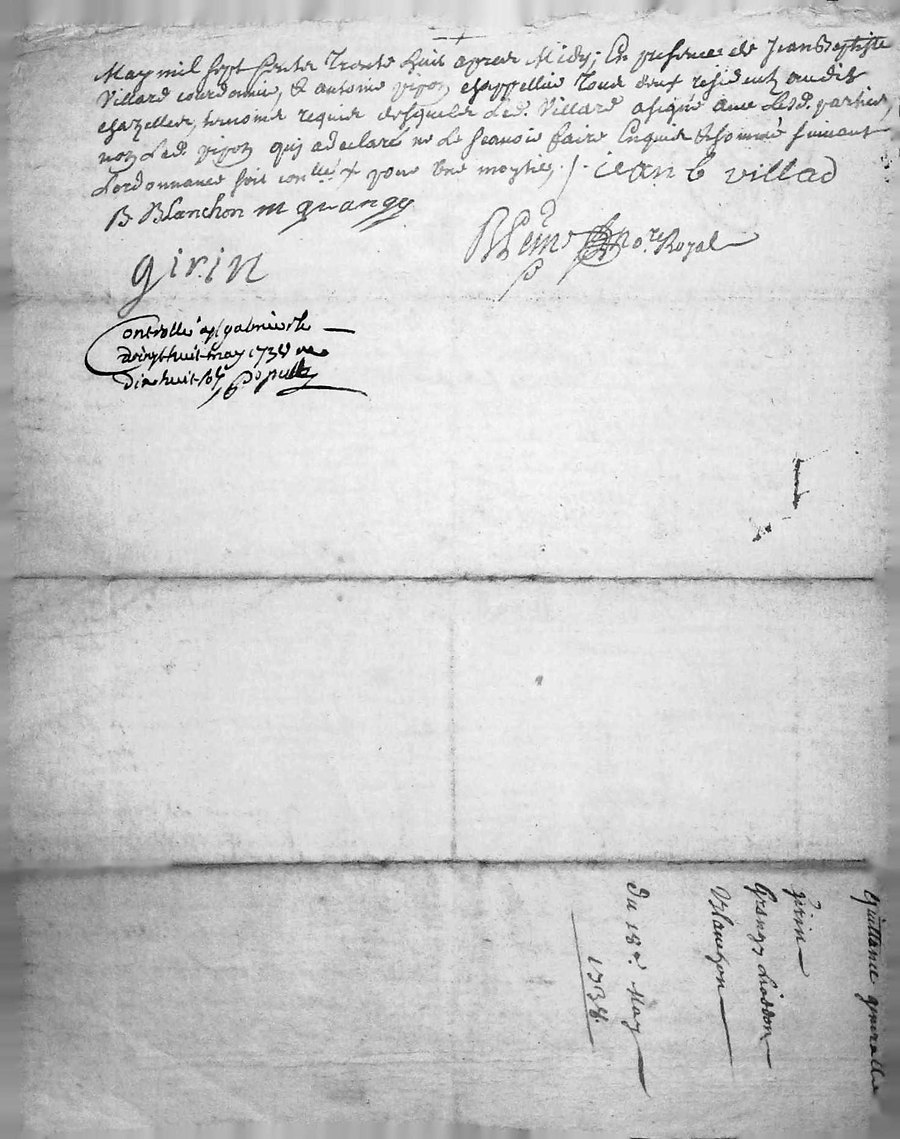 May mil sept cents trente huit apres Midy; En presence de Jean Baptiste
Villard cordonnie, & antoine pipon chappellie tous deux residents audit
chazelles, temoins requis desquels Led. Villard a signé avec Lesd. parties,
non Led. pipon quy a declaré ne Le scavoir faire Enquis & sommé suivant
Lordonnance soit con.lle pour Une moytié ./. iean b villad
B Blanchon m grangy
no.re Royal
girin
Controllé a St galmier le
dixhuit may 1738 Re
dix huit sols
Quittance generalle
girin
Grangy
Blanchon
Du 18e. May
1738.